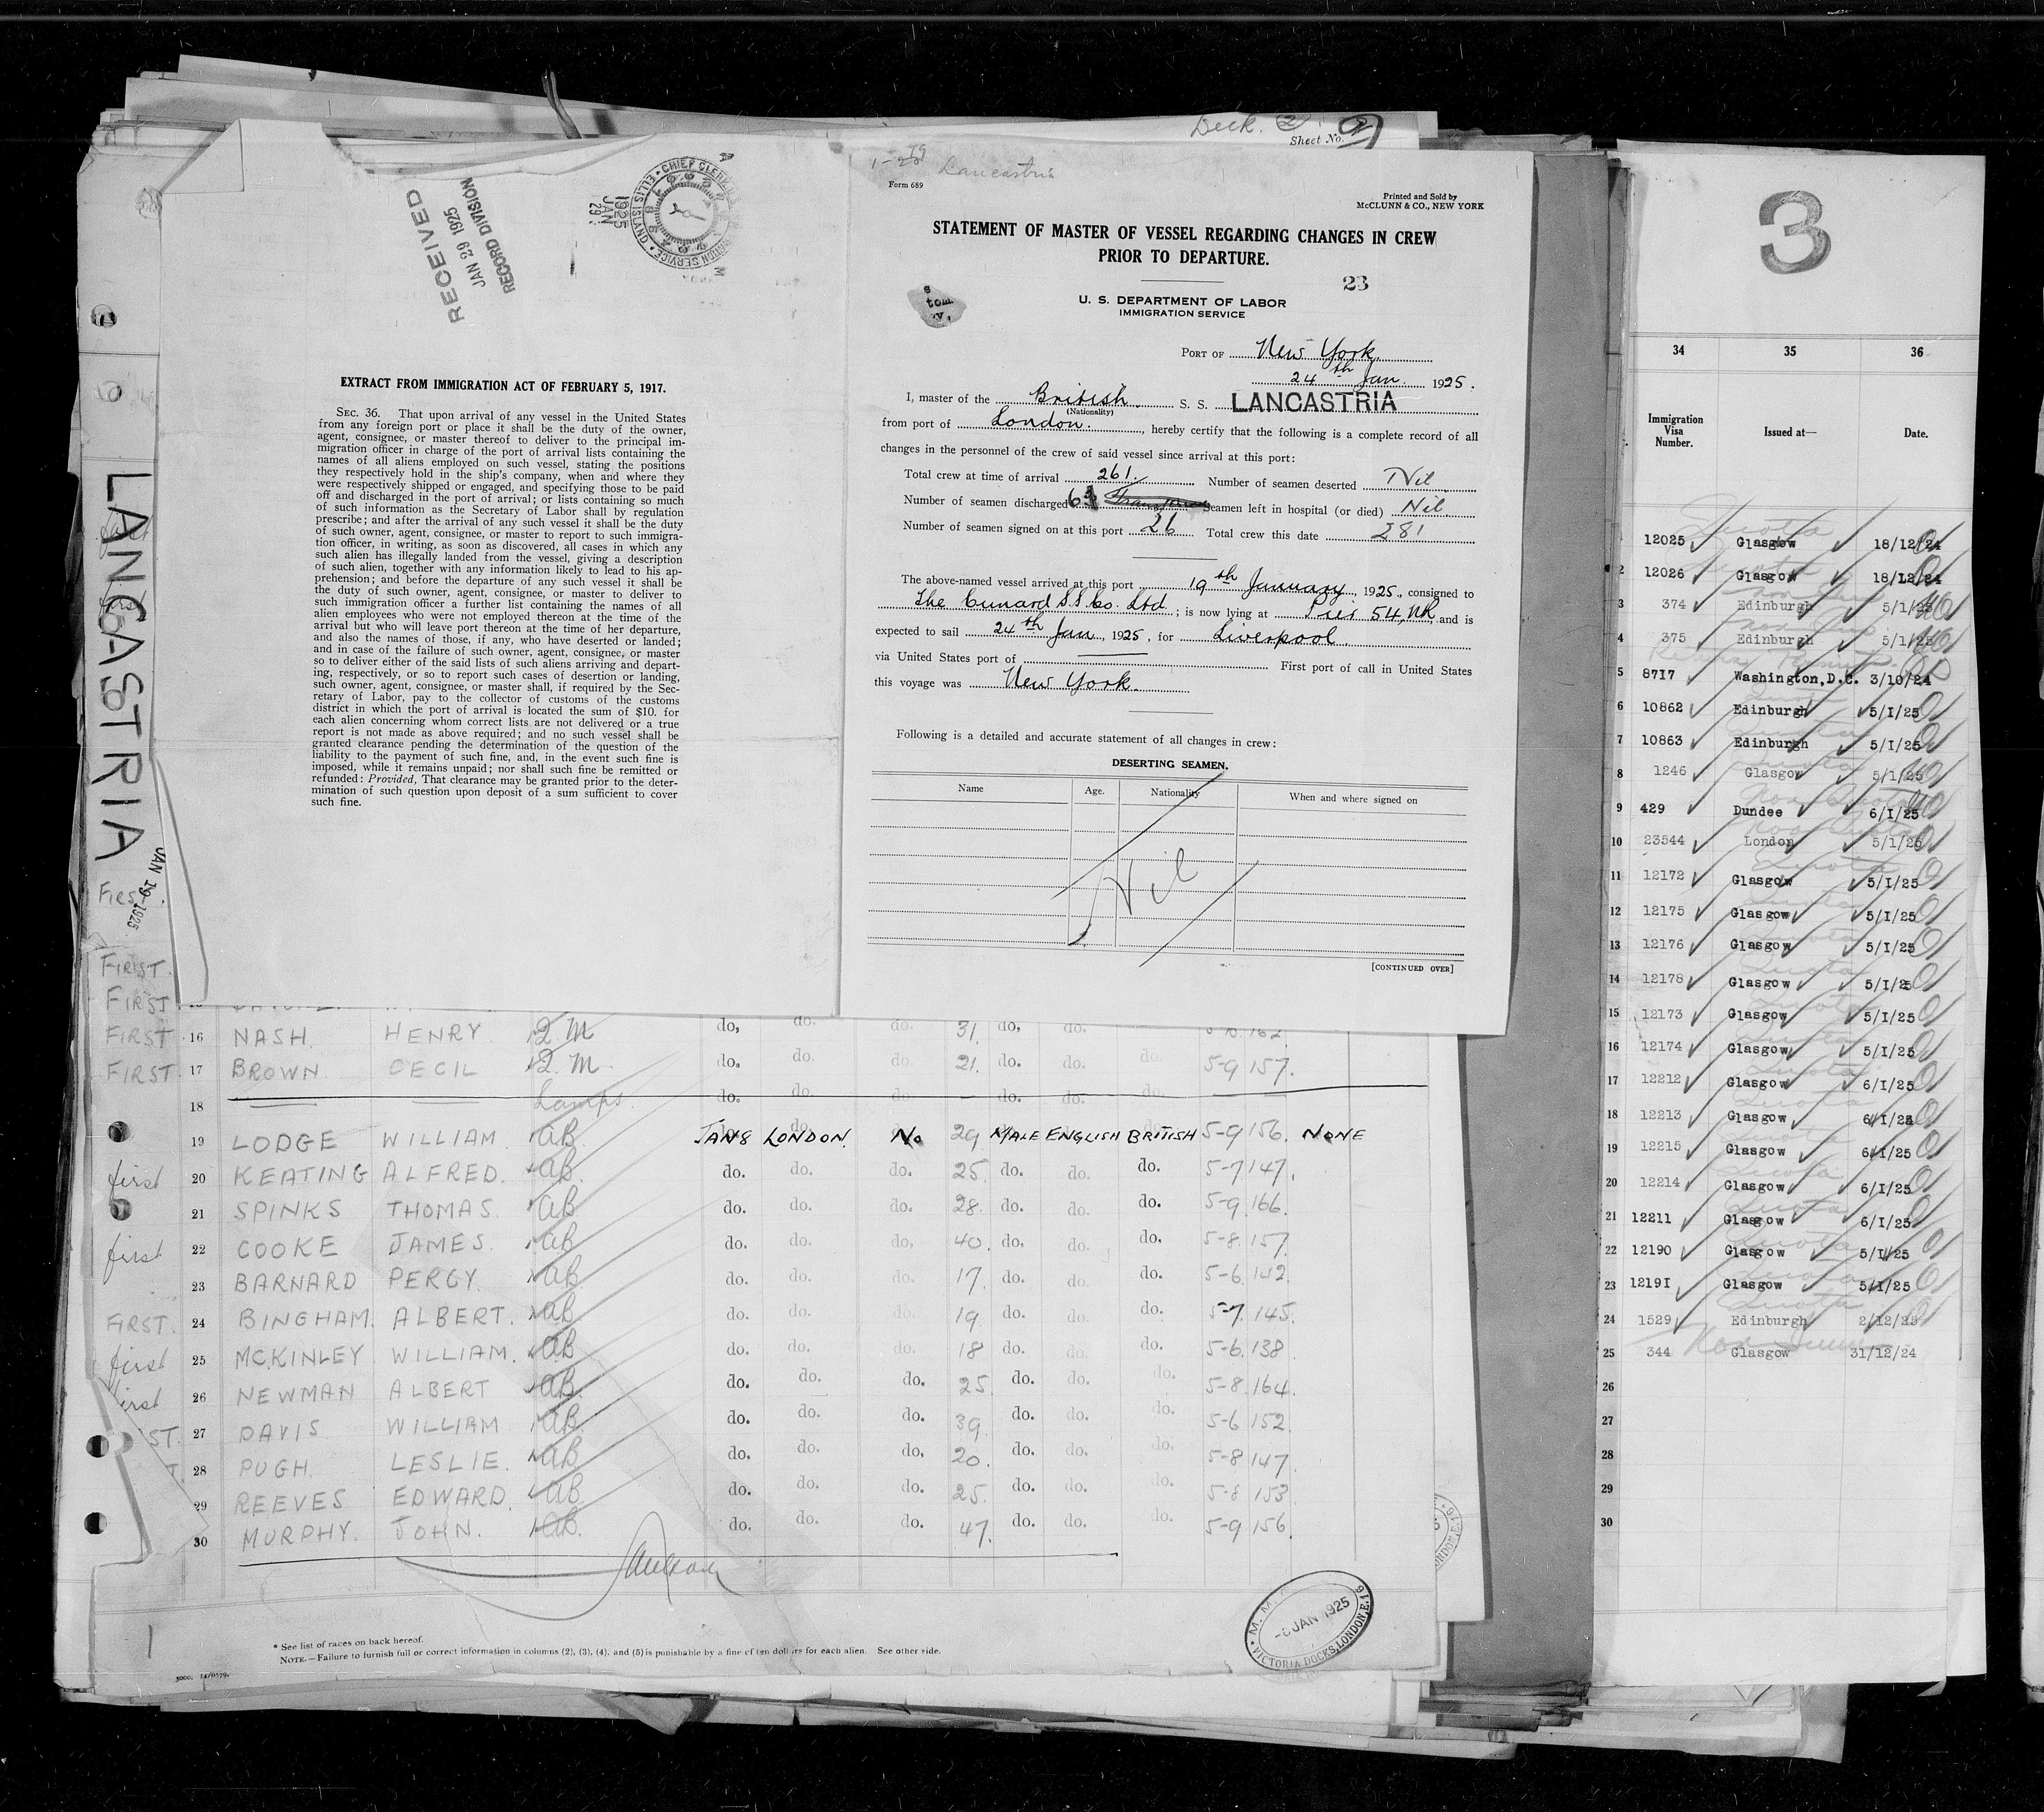 Deck. 2
Sheet No. 2
RECEIVED
JAN 29 1925
RECORD DIVISION
CHIEF CLERK
ELLIS ISLAND
1925
JAN
29
EXTRACT FROM IMMIGRATION ACT OF FEBRUARY 5, 1917.
SEC. 36. That upon arrival of any vessel in the United States
from any foreign port or place it shall be the duty of the owner,
agent, consignee, or master thereof to deliver to the principal im-
migration officer in charge of the port of arrival lists containing the
names of all aliens employed on such vessel, stating the positions
they respectively hold in the ship's company, when and where they
were respectively shipped or engaged, and specifying those to be paid
off and discharged in the port of arrival; or lists containing so much
of such information as the Secretary of Labor shall by regulation
prescribe; and after the arrival of any such vessel it shall be the duty
of such owner, agent, consignee, or master to report to such immigra-
tion officer, in writing, as soon as discovered, all cases in which any
such alien has illegally landed from the vessel, giving a description
of such alien, together with any information likely to lead to his ap-
prehension; and before the departure of any such vessel it shall be
the duty of such owner, agent, consignee, or master to deliver to
such immigration officer a further list containing the names of all
alien employees who were not employed thereon at the time of the
arrival but who will leave port thereon at the time of her departure,
and also the names of those, if any, who have deserted or landed;
and in case of the failure of such owner, agent, consignee, or master
so to deliver either of the said lists of such aliens arriving and depart-
ing, respectively, or so to report such cases of desertion or landing,
such owner, agent, consignee, or master shall, if required by the Sec-
retary of Labor, pay to the collector of customs of the customs
district in which the port of arrival is located the sum of $10. for
each alien concerning whom correct lists are not delivered or a true
report is not made as above required; and no such vessel shall be
granted clearance pending the determination of the question of the
liability to the payment of such fine, and, in the event such fine is
imposed, while it remains unpaid; nor shall such fine be remitted or
refunded: Provided, That clearance may be granted prior to the deter-
mination of such question upon deposit of a sum sufficient to cover
such fine.
Lancastria
Form 689
Printed and Sold by
McCLUNN & CO., NEW YORK
STATEMENT OF MASTER OF VESSEL REGARDING CHANGES IN CREW
PRIOR TO DEPARTURE.
23
U. S. DEPARTMENT OF LABOR
IMMIGRATION SERVICE
PORT OF New York
24th Jan. 1925.
I, master of the British S. S. LANCASTRIA
(Nationality)
from port of London., hereby certify that the following is a complete record of all
changes in the personnel of the crew of said vessel since arrival at this port:
Total crew at time of arrival 261. Number of seamen deserted Nil
Number of seamen discharged 6 Seamen left in hospital (or died) Nil.
Number of seamen signed on at this port 26 Total crew this date 281
The above-named vessel arrived at this port 19th January, 1925., consigned to
The Cunard S.S. Co. Ltd; is now lying at Pier 54, NR, and is
expected to sail 24th Jan., 1925, for Liverpool.
via United States port of First port of call in United States
this voyage was New York.
Following is a detailed and accurate statement of all changes in crew:
DESERTING SEAMEN.
Name Age. Nationality When and where signed on
Nil
[CONTINUED OVER]
LANCASTRIA
JAN 19 1925
First.
FIRST.
FIRST
FIRST 16 NASH. HENRY. Q.M do, do. do. 31. do, do. 162.
FIRST 17 BROWN CECIL Q.M. do. do. do 21. do. do. do. 5-9 157.
18 Lamps. do. do. do. do. do. do.
19 LODGE WILLIAM. AB. JAN 8 LONDON. No 29 MALE ENGLISH BRITISH 5-9 156. NONE
first 20 KEATING ALFRED. AB. do. do. do. 25. do. do. do. 5-7 147.
21 SPINKS THOMAS. AB do. do. do. 28. do. do. do. 5-9 166.
first 22 COOKE JAMES. AB do. do. do, 40. do. do. do. 5-8. 157.
23 BARNARD PERCY. AB do. do. do. 17. do. do. do. 5-6. 142.
FIRST. 24 BINGHAM. ALBERT. AB do. do. do. 19. do. do. do. 5-7. 145.
first 25 MCKINLEY WILLIAM. AB do. do. do. 18 do. do. do. 5-6. 138.
first 26 NEWMAN ALBERT AB. do. do. do. 25. do. do. do. 5-8. 164.
ST. 27 DAVIS WILLIAM AB. do. do. do. 39. do. do. do. 5-6 152.
T. 28 PUGH. LESLIE. AB do. do. do, 20. do. do. do. 5-8 147.
29 REEVES EDWARD. AB. do. do. do. 25. do. do. do. 5-8 153
30 MURPHY. JOHN. AB. do. do. do. 47. do. do. do. 5-9 156.
* See list of races on back hereof.
NOTE.—Failure to furnish full or correct information in columns (2), (3), (4), and (5) is punishable by a fine of ten dollars for each alien. See other side.
M. M.
-8 JAN 1925
VICTORIA DOCKS, LONDON, E. 16
3
34 35 36
Immigration Visa Number. Issued at— Date.
12025 Glasgow 18/12/24
2 12026 Glasgow 18/12/24
3 374 Edinburgh 5/1/25
4 375 Edinburgh 5/1/25
5 8717 Washington, D.C. 3/10/24
6 10862 Edinburgh 5/1/25
7 10863 Edinburgh 5/1/25
8 1246 Glasgow 5/1/25
9 429 Dundee 6/1/25
10 23544 London 5/1/25
11 12172 Glasgow 5/1/25
12 12175 Glasgow 5/1/25
13 12176 Glasgow 5/1/25
14 12178 Glasgow 5/1/25
15 12173 Glasgow 5/1/25
16 12174 Glasgow 5/1/25
17 12212 Glasgow 6/1/25
18 12213 Glasgow 6/1/25
19 12215 Glasgow 6/1/25
20 12214 Glasgow 6/1/25
21 12211 Glasgow 6/1/25
22 12190 Glasgow 5/1/25
23 12191 Glasgow 5/1/25
24 1529 Edinburgh 2/12/25
25 344 Glasgow 31/12/24
26
27
28
29
30